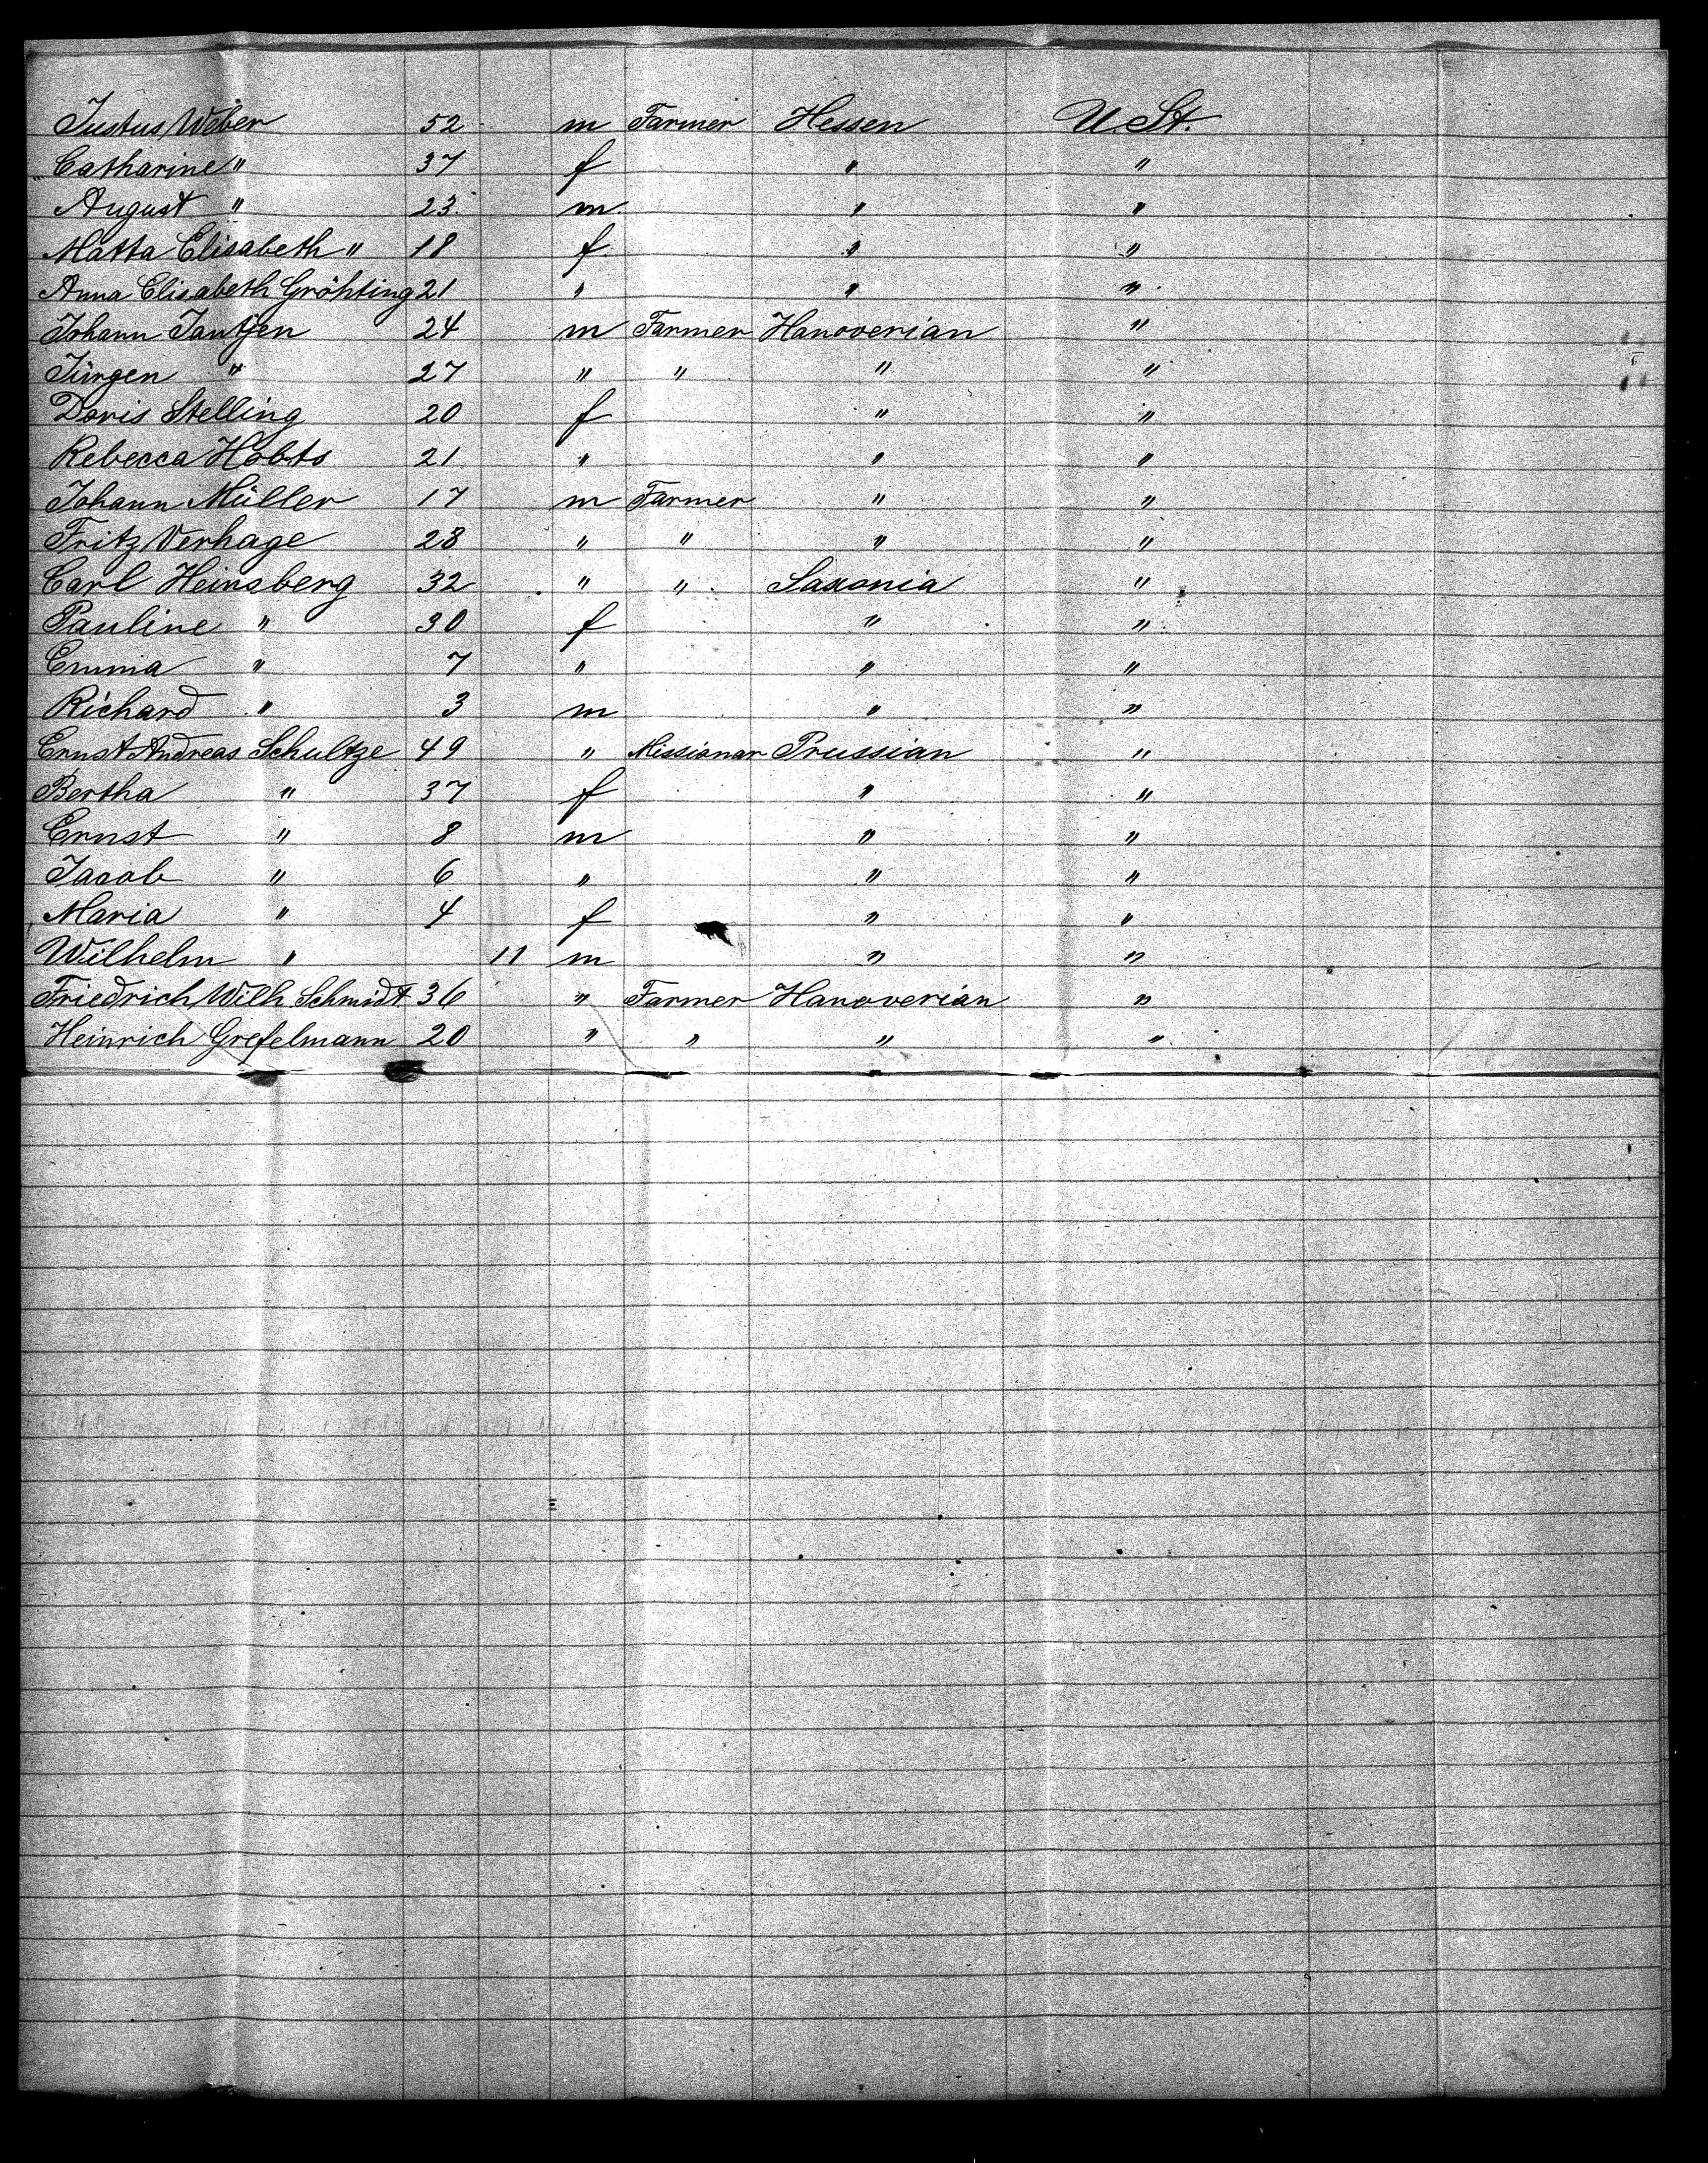 Justus Weber 52 m Farmer Hessen U. St.
Catharine " 37 f " "
August " 23. m. " "
Matta Elisabeth " 18 f. " "
Anna Elisabeth Gröhting 21 " " "
Johann Jantjen 24 m Farmer Hanoverian "
Jürgen " 27 " " " "
Doris Stelling 20 f " "
Rebecca Hobts 21 " " "
Johann Müller 17 m Farmer " "
Fritz Verhage 28 " " " "
Carl Heinsberg 32 " " Saxonia "
Pauline " 30 f " "
Emma " 7 " " "
Richard " 3 m " "
Ernst Andreas Schultze 49 " Missionar Prussian "
Bertha " 37 f " "
Ernst " 8 m " "
Jacob " 6 " " "
Maria " 4 f " "
Wilhelm " 11 m " "
Friedrich Wilh Schmidt 36 " Farmer Hanoverian "
Heinrich Grefelmann 20 " " " "